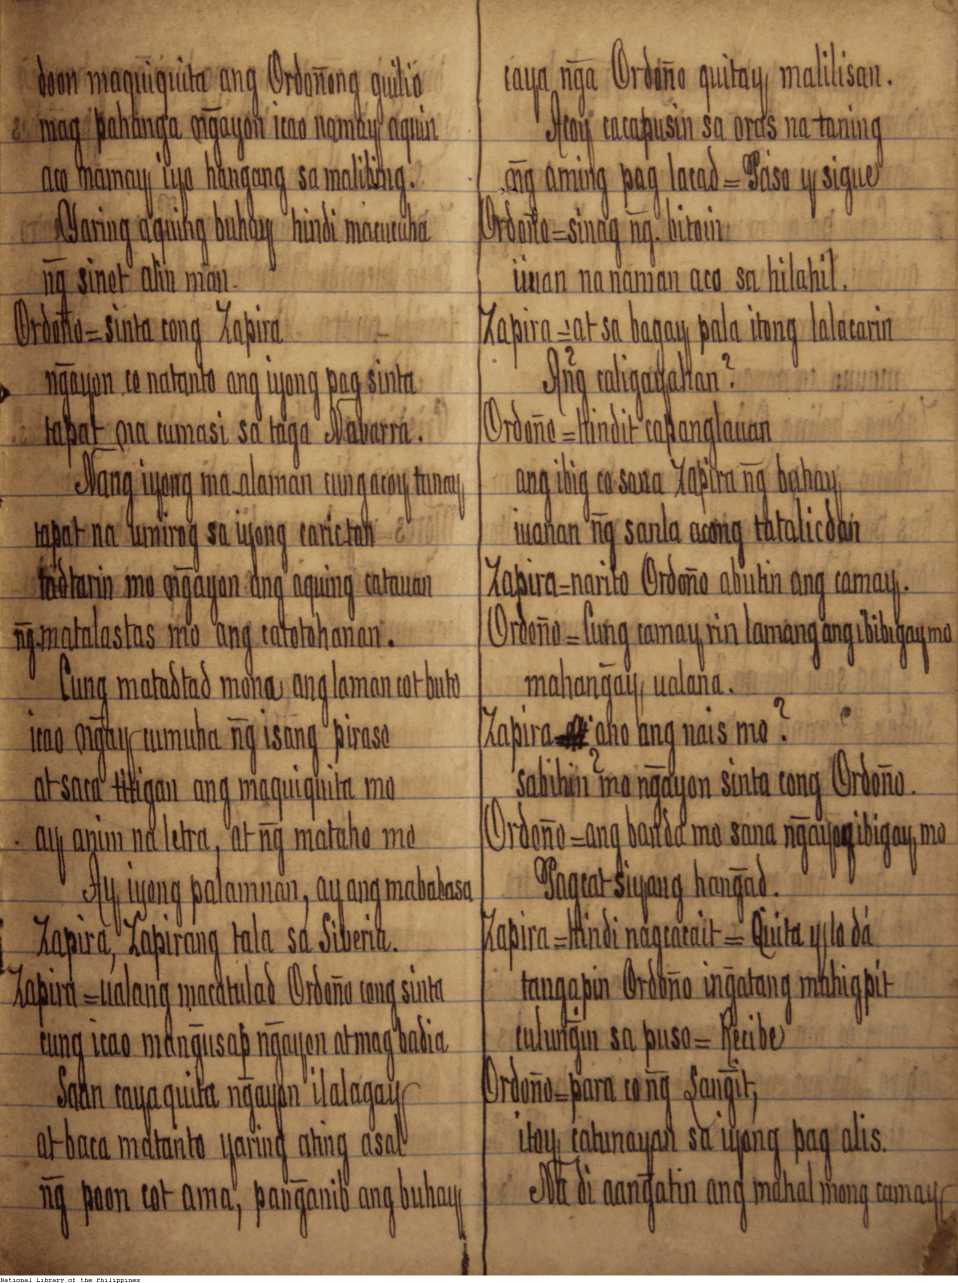 doon maquiquita ang Ordoñong guilio
mag pahanga ng̃ayon icao namay aquin
aco namay iyo hangang sa malibing.
Yaring aquing buhay hindi macucuha
ng̃ sinot atin man.
Ordoño=sinta cong Zapira
ng̃ayon co natanto ang iyong pag sinta
tapat na cumasi sa taga Nabarra.
Nang iyong ma alaman cung acoy tunay
tapat na umirog sa iyong carictan
tadtarin mo ng̃ayon ang aquing catauan
ng̃ matalastas mo ang catotohanan.
Cung matadtad mona ang laman cot buto
icao ng̃ay cumuha ng̃ isang piraso
at saca titigan ang maquiquita mo
ay anim na letra, at ng̃ mataho mo
Ay iyong palamnan, ay ang mababasa
Zapira, Zapirang tala sa Siberia.
Zapira=ualang macatulad Ordoño cong sinta
cung icao mang̃usap ng̃ayon at mag badia
Saan caya quita ng̃ayon ilalagay
at baca matanto yaring ating asal
ng̃ poon cot ama, pang̃anib ang buhay
caya ng̃a Ordoño quitay malilisan.
Acoy cacapusin sa oras na taning
ng̃ aming pag lacad=Paso y sigue
Ordoño=sinag ng̃ bitoin
iiuan na naman aco sa hilahil.
Zapira=at sa bagay pala itong lalacarin
Ang̃ caligayahan?
Ordoño=Hindit capanglauan
ang ibig co sana Zapira ng̃ buhay
iuanan ng̃ sanla acong tatalicdan
Zapira=narito Ordoño abutin ang camay.
Ordoño=Cung camay rin lamang ang ibibigay mo
mahang̃ay ualana.
Zapira ano ang nais mo?
sabihin mo ng̃ayon sinta cong Ordoño.
Ordoño=ang banda mo sana ng̃ayoy ibigay mo
Pagcat siyang hang̃ad.
Zapira=Hindi nagcacait=Quita y lo dá
tangapin Ordoño ing̃atang mahigpit
culung̃in sa puso=Recibe
Ordoño=para co ng̃ Lang̃it,
itoy catunayan sa iyong pag alis.
Na di aang̃atin ang mahal mong camay
National Library of the Philippines